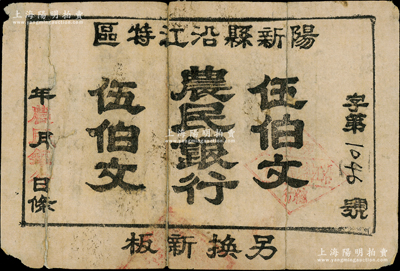 上海阳明拍卖
陽新縣沿江特區
字第1046號
伍伯文
農民銀行
伍伯文
年 月 日條
另換新板
上海阳明拍卖